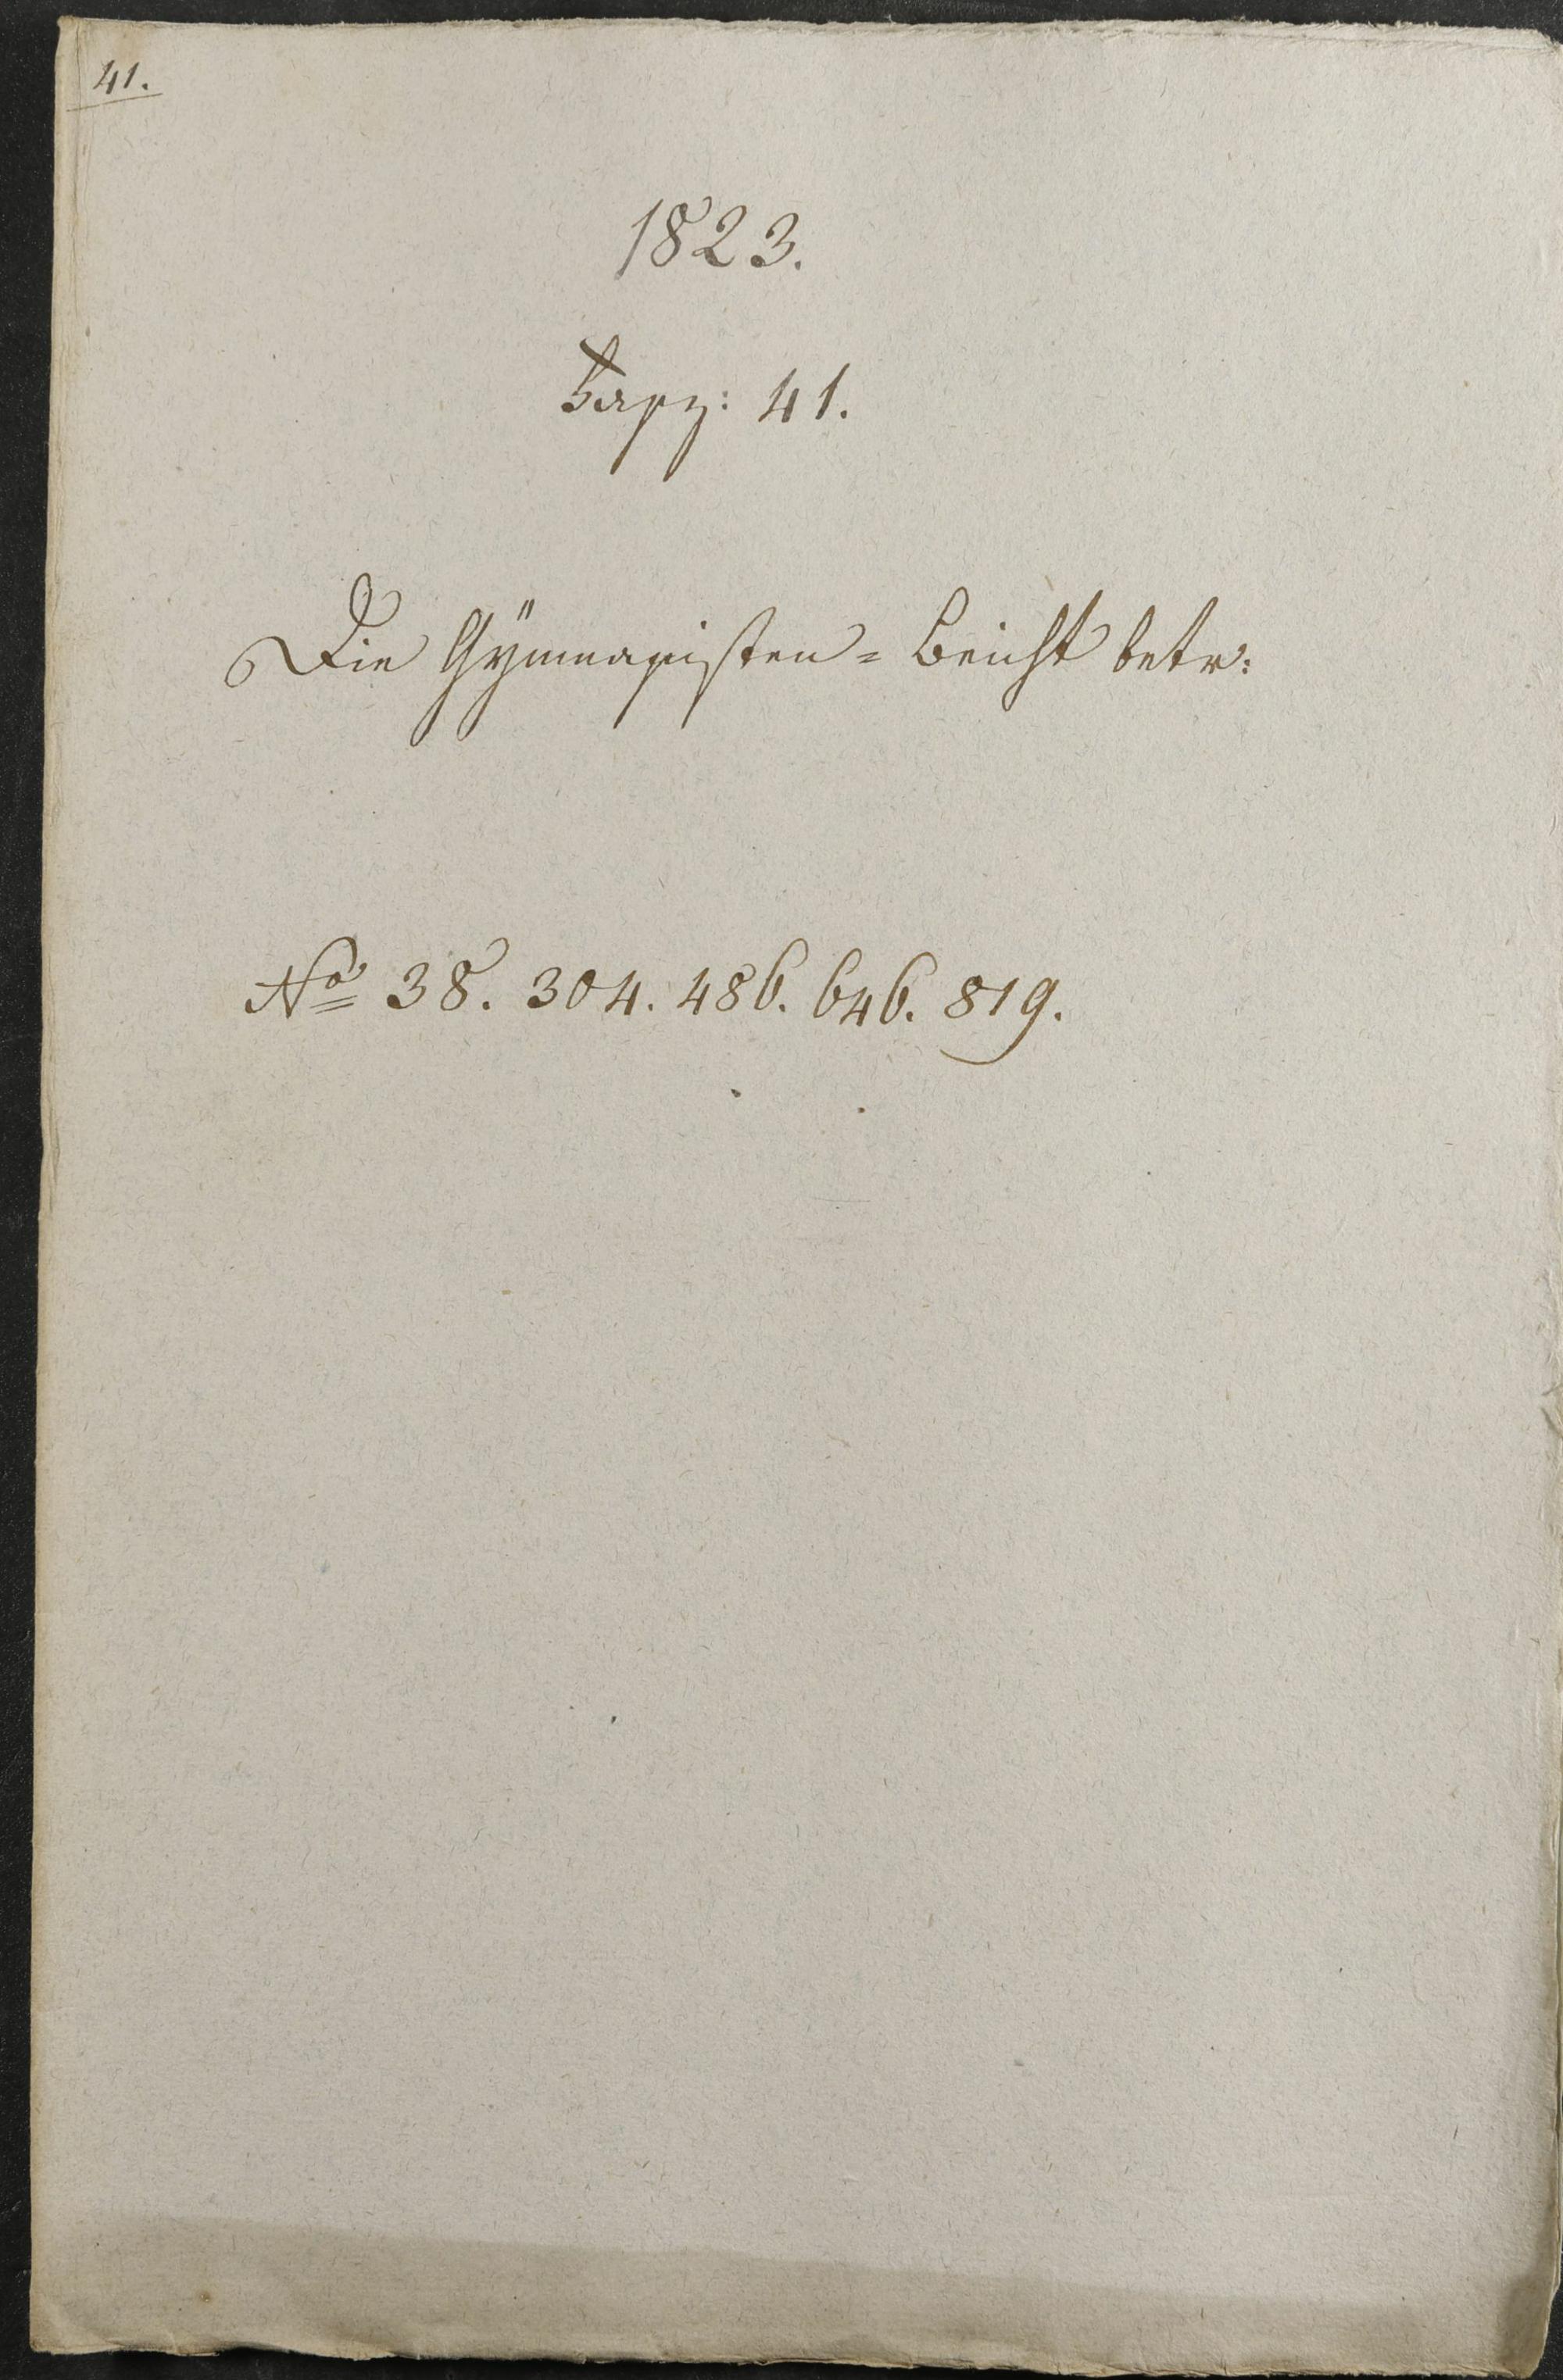 41.
1823.
Fasz: 41.
Die Gÿmnasisten=Beicht betr:
No 38. 304. 486. 646. 819.